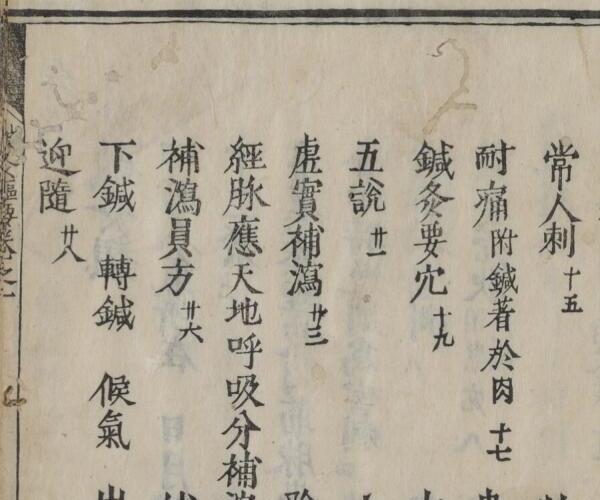 常人刺 十五
耐痛 附鍼著於肉 十七
鍼灸要穴 十九
五說 廿一
虛實補瀉 廿三
經脉應天地呼吸分補瀉
補瀉員方 廿六
下鍼 轉鍼 候氣 出
迎隨 廿八